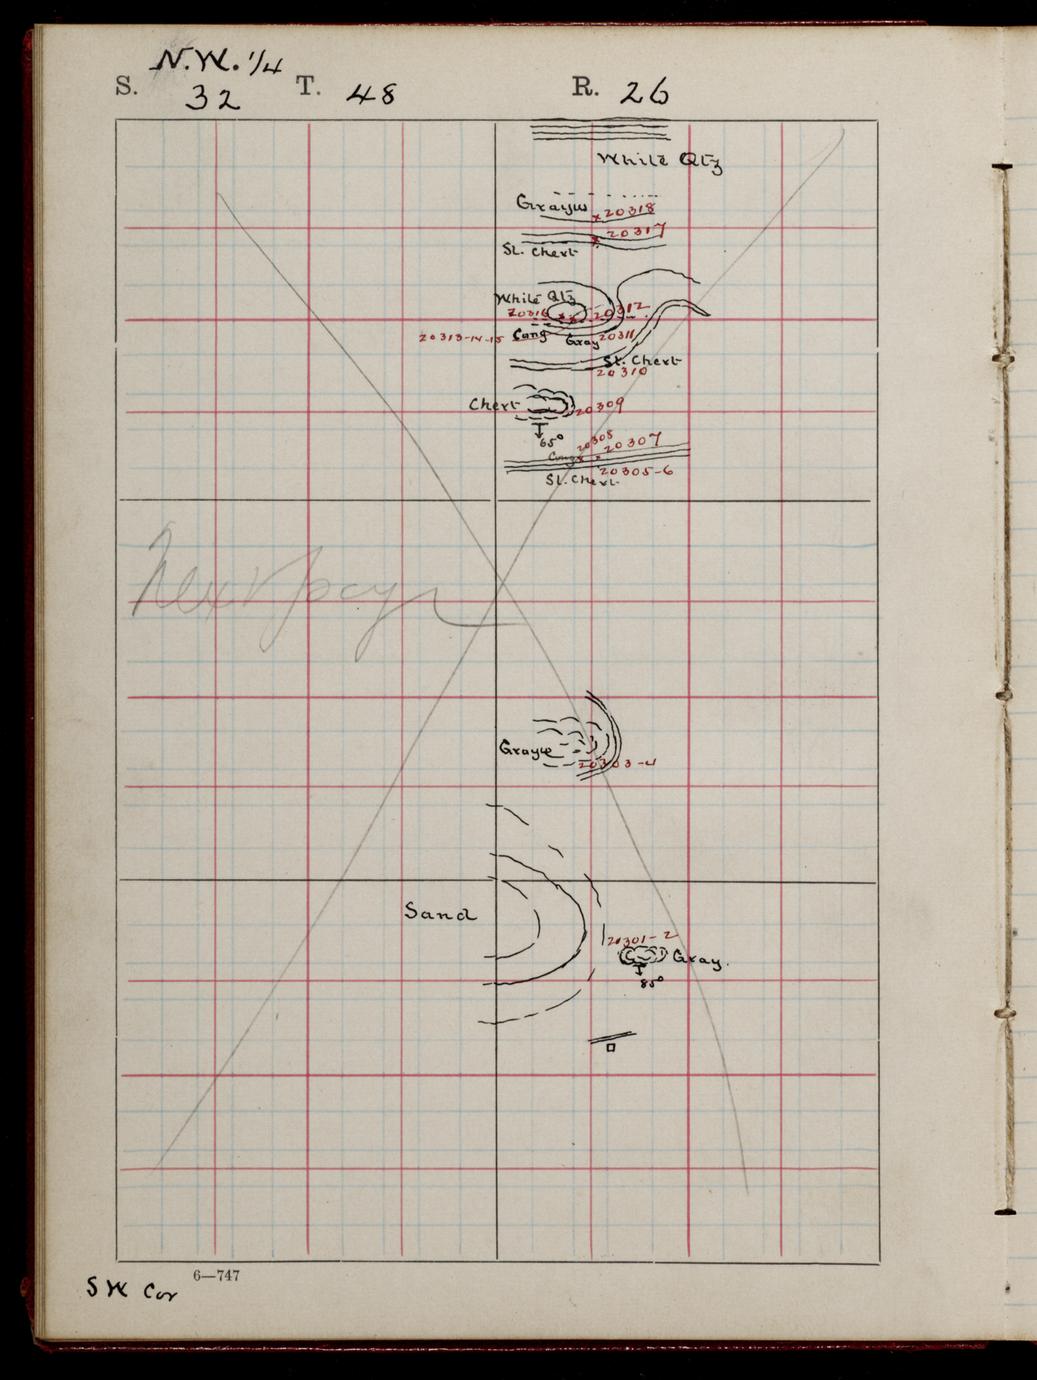 N.W. 1/4
S. 32 T. 48 R. 26
White Qtz
Grayw
20318
20317
Sl. Chert
White Qtz
20316 20312
20313-14-15 Cong Gray 20311
Sl. Chert
20310
Chert 20309
65°
20307
Cong
20305-6
Sl. Chert
Next page
Grayw
20303-4
Sand
20301-2
Gray.
85°
6—747
SW Cor